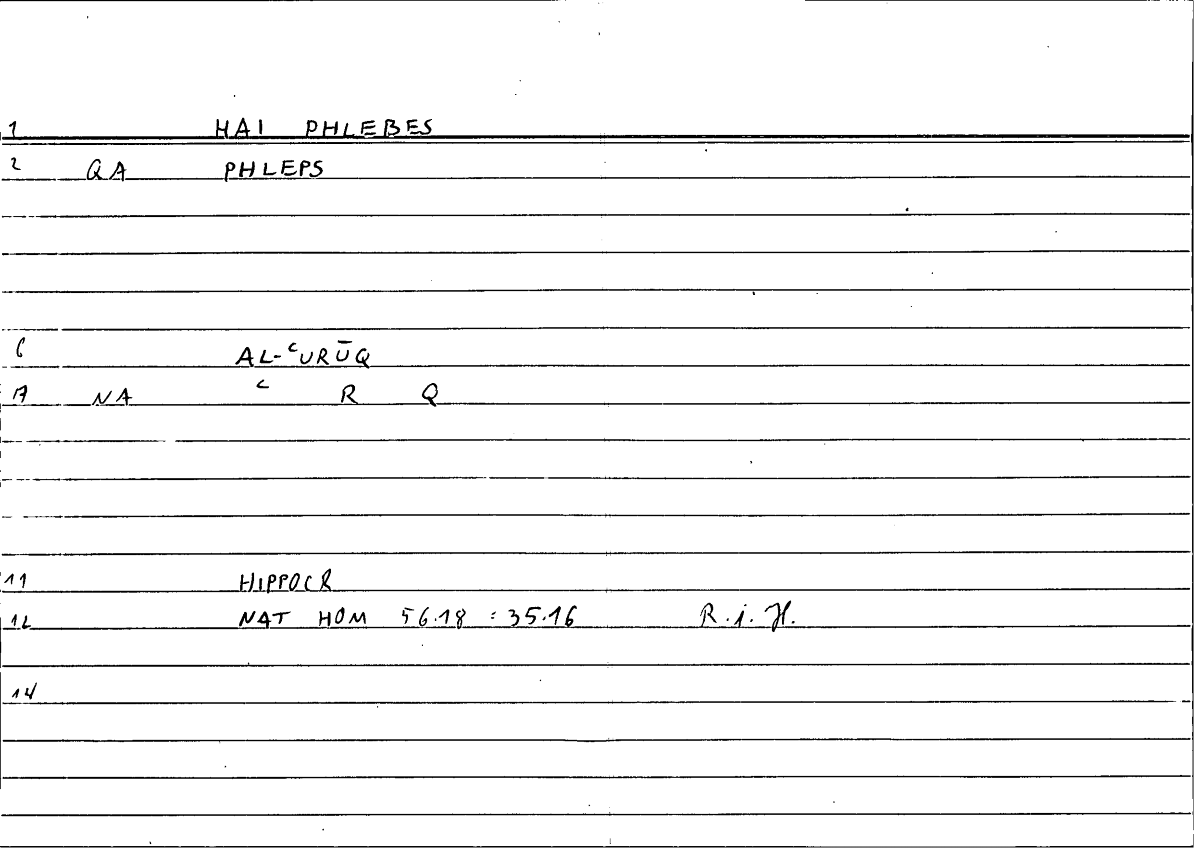 1 HAI PHLEBES
2 QA PHLEPS
6 AL-ʿURŪQ
7 NA ʿ R Q
11 HIPPOCR
12 NAT HOM 56.18 : 35.16 R. i. H.
14